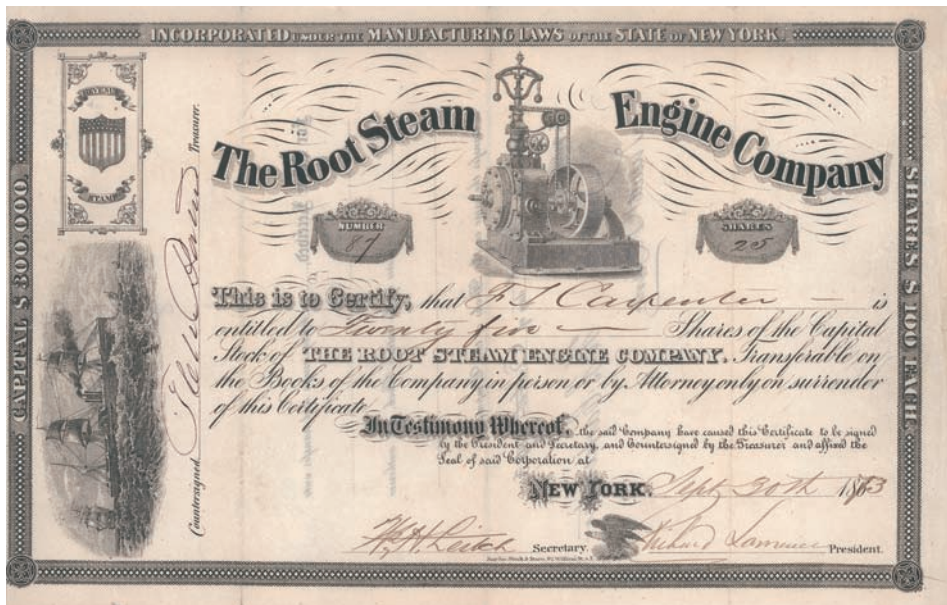 INCORPORATED UNDER THE MANUFACTURING LAWS OF THE STATE OF NEW YORK.
CAPITAL $ 300,000.
REVENUE
STAMP
Countersigned
Treasurer.
The Root Steam Engine Company
NUMBER
87
SHARES
25
This is to Certify, that F S Carpenter is
entitled to Twenty five Shares of the Capital
Stock of THE ROOT STEAM ENGINE COMPANY. Transferable on
the Books of the Company in person or by Attorney only on surrender
of this Certificate
In Testimony Whereof, the said Company have caused this Certificate to be signed
by the President and Secretary, and Countersigned by the Treasurer and affixed the
Seal of said Corporation at
NEW YORK. Sept 30th 18
W H Leitch Secretary. Richard Lawrence President.
SHARES $ 100 EACH.